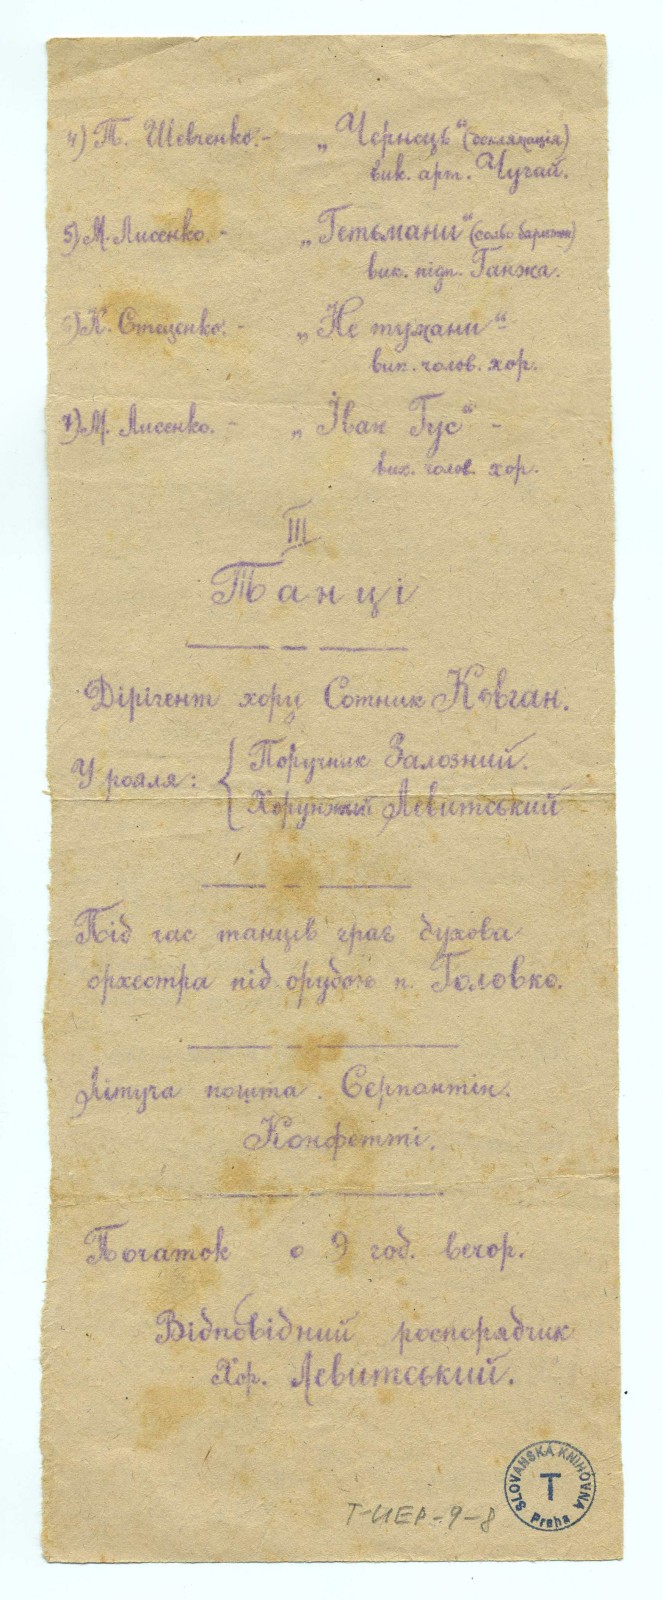 4) Т. Шевченко. - „Чернець“ (деклямація)
вик. арт. Чугай.
5) М. Лисенко. - „Гетьмани“ (сольо баритон)
вик. підп. Ганжа.
6) К. Стеценко. - „Не тумани“ -
вик. чолов. хор.
7) М. Лисенко. - „Іван Гус“ -
вик. чолов. хор.
III
Танці
Дірігент хору Сотник Ковган.
У рояля: { Поручник Залозний.
Хорунжий Левитський
Під час танців грає духова
орхестра під орудою п. Головко.
Літуча пошта. Серпантін.
Конфетті.
Початок о 9 год. вечор.
Відповідний роспорядчик
Хор. Левитський.
T-UEP-9-8
SLOVANSKÁ KNIHOVNA
T
Praha